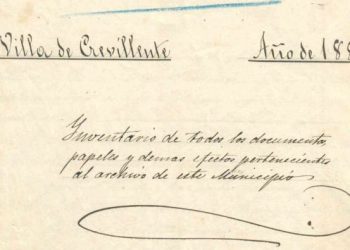 Villa de Crevillente Año de 188
Ynventario de todos los documentos
papeles y demas efectos pertenecientes
al archivo de este Municipio